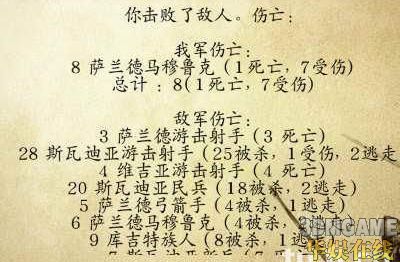 你击败了敌人。伤亡:
我军伤亡:
8 萨兰德马穆鲁克 (1死亡, 7受伤)
总计 : 8(1死亡, 7受伤)
敌军伤亡:
3 萨兰德游击射手 (3 死亡)
28 斯瓦迪亚游击射手 (25被杀, 1受伤, 2逃走
4 维吉亚游击射手 (4 死亡)
20 斯瓦迪亚民兵 (18被杀, 2逃走)
5 萨兰德弓箭手 (4被杀, 1逃走)
6 萨兰德马穆鲁克 (4被杀,
9 库吉特族人 (8被杀, 1逃
华娱在线